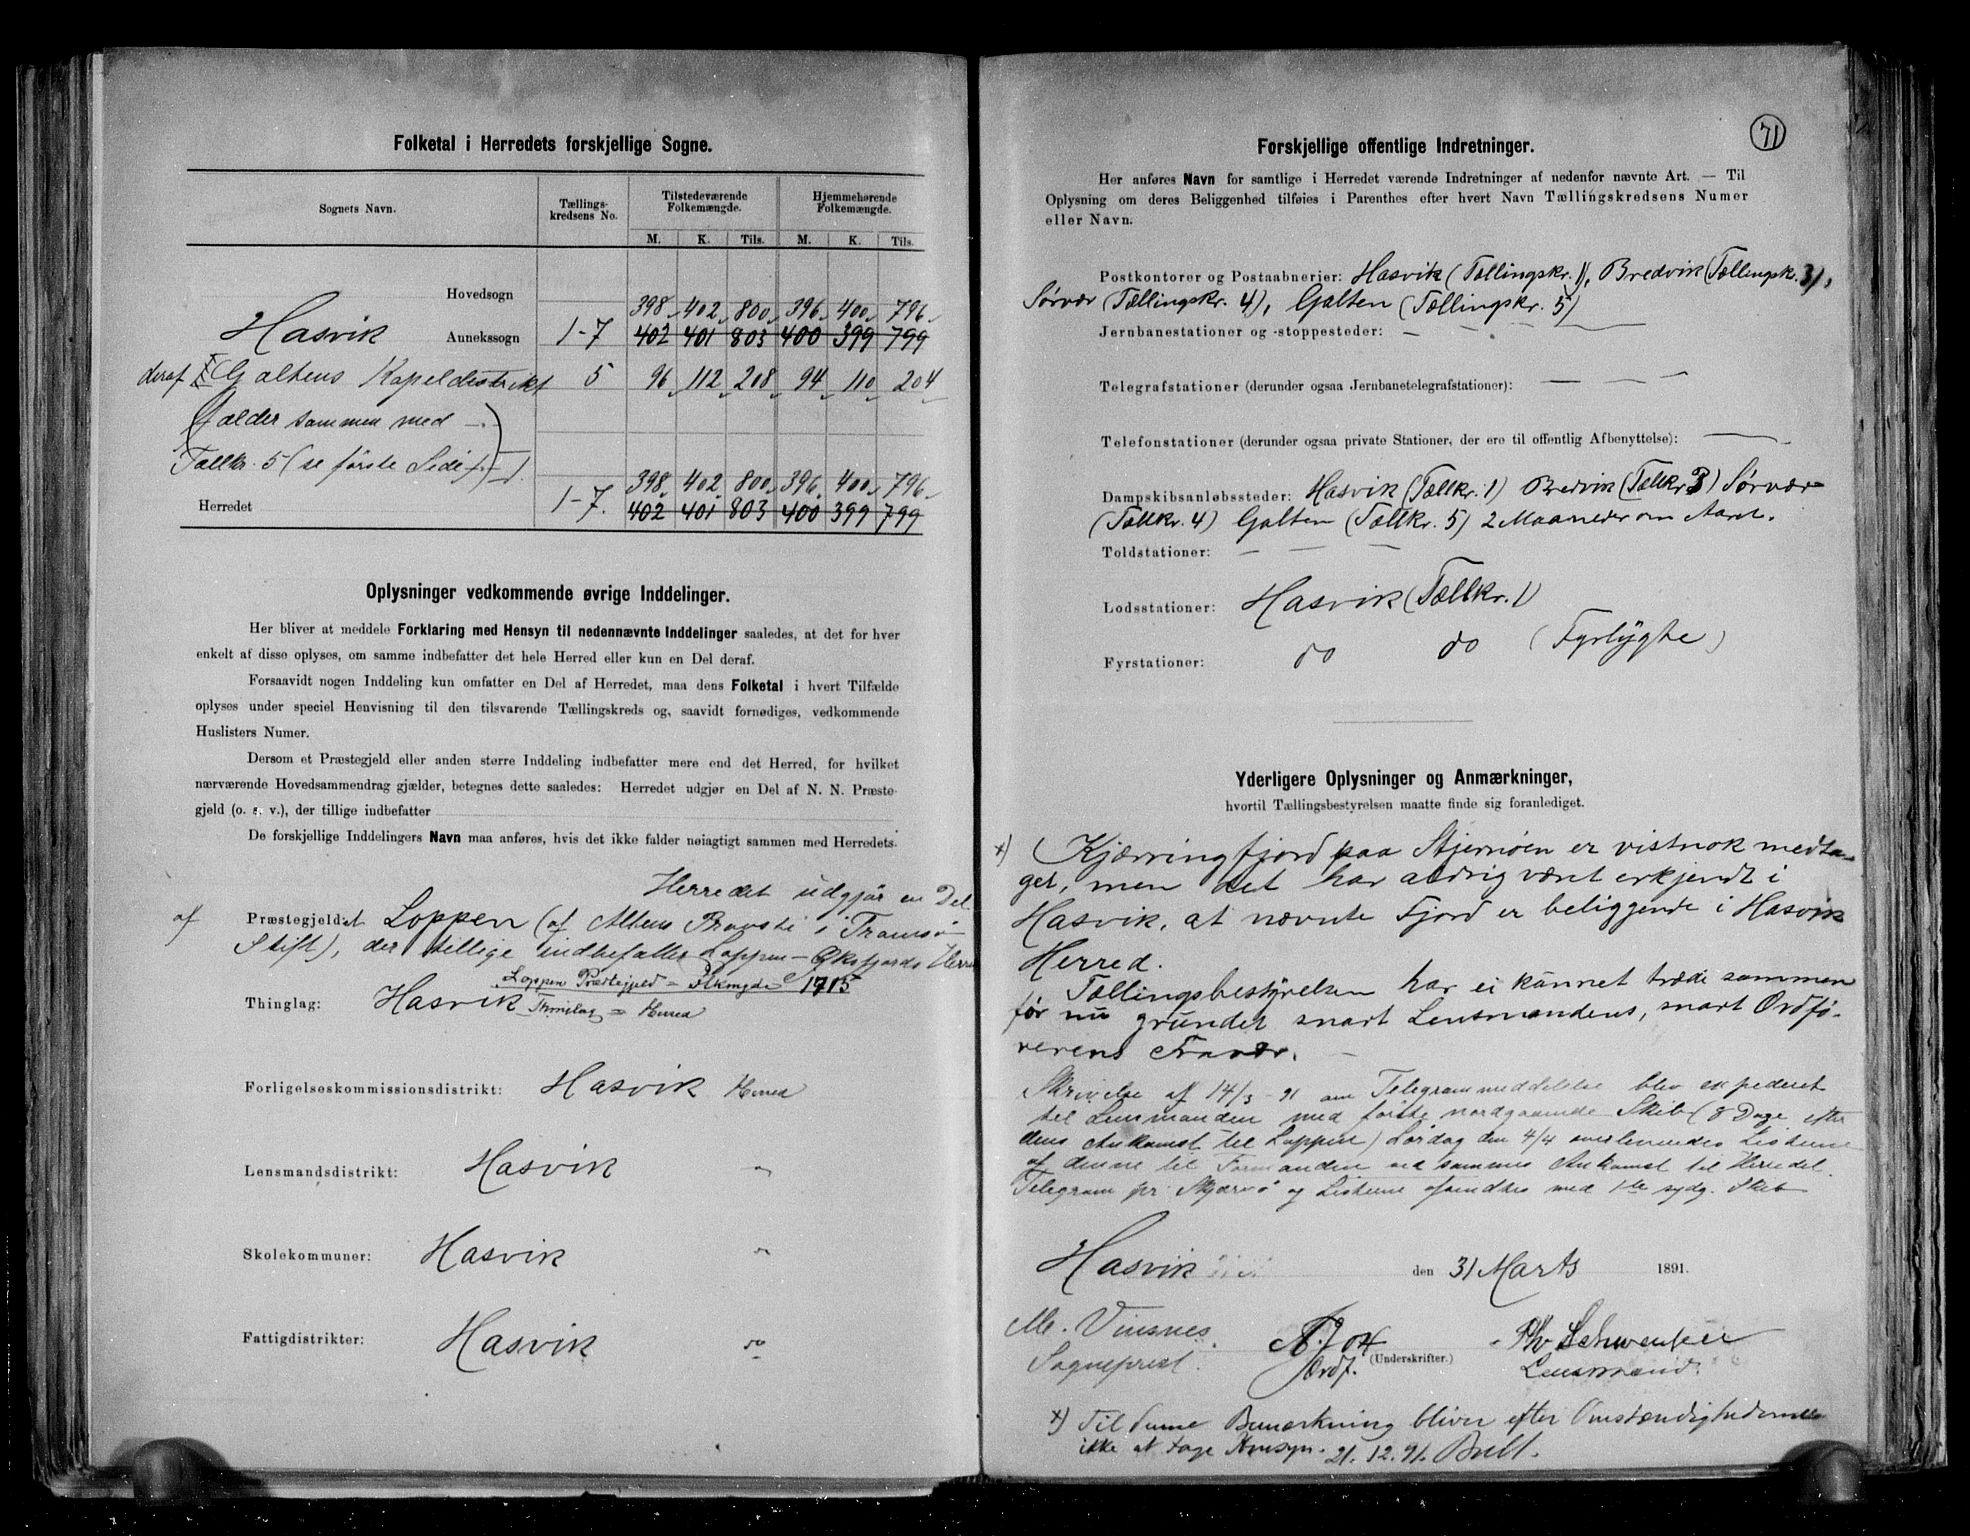 Folketal i Herredets forskjellige Sogne.
Sognets Navn.
Tællings-
kredsens No.
Tilstedeværende
Folkemængde.
Hjemmehørende
Folkemængde.
M. K. Tils. M. K. Tils.
Hovedsogn
398 402 800 396 400 796
Hasvik Annekssogn 1-7 402 401 803 400 399 799
deraf Galtens Kapeldistrikt 5 96 112 208 94 110 204
(falder sammen med
Tællkr. 5 (se første Side)
398 402 800 396 400 796
Herredet 1-7. 402 401 803 400 399 799
Oplysninger vedkommende øvrige Inddelinger.
Her bliver at meddele Forklaring med Hensyn til nedennævnte Inddelinger saaledes, at det for hver
enkelt af disse oplyses, om samme indbefatter det hele Herred eller kun en Del deraf.
Forsaavidt nogen Inddeling kun omfatter en Del af Herredet, maa dens Folketal i hvert Tilfælde
oplyses under speciel Henvisning til den tilsvarende Tællingskreds og, saavidt fornødiges, vedkommende
Huslisters Numer.
Dersom et Præstegjeld eller anden større Inddeling indbefatter mere end det Herred, for hvilket
nærværende Hovedsammendrag gjælder, betegnes dette saaledes: Herredet udgjør en Del af N. N. Præste-
gjeld (o. s. v.), der tillige indbefatter
De forskjellige Inddelingers Navn maa anføres, hvis det ikke falder nøiagtigt sammen med Herredets.
Herredet udgjør en Del
af Præstegjeldet Loppen (af Altens Provsti i Tromsø
Stift), der tillige indbefatter Loppen-Øksfjords Herred
Loppen Præstegjeld = Folkemgde 1715
Thinglag: Hasvik Thinglag = Herred
Forligelseskommissionsdistrikt: Hasvik Herred
Lensmandsdistrikt: Hasvik "
Skolekommuner: Hasvik "
Fattigdistrikter: Hasvik do
71
Forskjellige offentlige Indretninger.
Her anføres Navn for samtlige i Herredet værende Indretninger af nedenfor nævnte Art. — Til
Oplysning om deres Beliggenhed tilføies i Parenthes efter hvert Navn Tællingskredsens Numer
eller Navn.
Postkontorer og Postaabnerier: Hasvik (Tællingskr. 1), Bredvik (Tællingsk. 3),
Sørvær (Tællingskr. 4), Galten (Tællingskr. 5)
Jernbanestationer og -stoppesteder: — — —
Telegrafstationer (derunder ogsaa Jernbanetelegrafstationer): — — —
Telefonstationer (derunder ogsaa private Stationer, der ere til offentlig Afbenyttelse): —
Dampskibsanløbssteder: Hasvik (Tællkr. 1) Bredvik (Tællkr 3) Sørvær
(Tællkr. 4) Galten (Tællkr. 5) 2 Maaneder om Aaret.
Toldstationer: — — —
Lodsstationer: Hasvik (Tællkr. 1)
Fyrstationer: do do (Fyrlygte)
Yderligere Oplysninger og Anmærkninger,
hvortil Tællingsbestyrelsen maatte finde sig foranlediget.
x) Kjærringfjord paa Stjernøen er vistnok medta-
get, men det har aldrig været erkjendt i
Hasvik, at nævnte Fjord er beliggende i Hasvik
Herred.
Tællingsbestyrelsen har ei kunnet træde sammen
før nu grundet snart Lensmandens, snart Ordfø-
rerens Fravær. —
Skrivelse af 14/3-91 om Telegrammeddelelse blev expederet
til Lensmanden med første nordgaaende Skib (8 Dage efter
dens Ankomst til Loppen) Lørdag den 4/4 overleveredes Listerne
af denne til Formanden ved sammes Ankomst til Herredet.
Telegram pr. Skjærvø og Listerne afsendtes med 1ste sydg. Skib
Hasvik den 31 Marts 1891.
M. Vinsnes
Sogneprest.
Ordf.
(Underskrifter.)
Lensmand.
x) Til denne Bemærkning bliver efter Omstændighederne
ikke at tage Hensyn. 21.12.91.